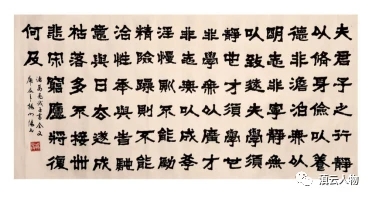 夫君子之行靜
以修身儉以養
德非澹泊無以
明志非寧靜無
以致遠夫學須
靜也才須學也
非學無以廣才
非志無以成學
淫慢則不能勵
精險躁則不能
治性年與時馳
意與日去遂成
枯落多不接世
悲守窮廬將復
何及
諸葛亮誡子書全文
滇云人物